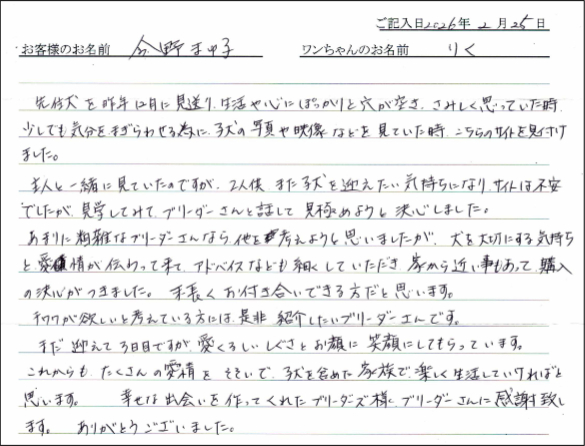 ご記入日2026年 2月 25日
お客様のお名前 今野まゆ子 ワンちゃんのお名前 りく
先住犬を昨年12月に見送り、生活や心にぽっかりと穴が空き、さみしく思っていた時、
少しでも気分をまぎらわせる為に、子犬の写真や映像などを見ていた時、こちらのサイトを見付け
ました。
主人と一緒に見ていたのですが、2人供、また子犬を迎えたい気持ちになり、サイトは不安
でしたが、見学してみて、ブリーダーさんと話して見極めようと決心しました。
あまりに粗雑なブリーダーさんなら他を考えようと思いましたが、犬を大切にする気持ち
と愛情が伝わって来て、アドバイスなども細くしていただき、家から近い事もあって、購入
の決心がつきました。 末長くお付き合いできる方だと思います。
チワワが欲しいと考えている方には、是非紹介したいブリーダーさんです。
まだ迎えて3日目ですが、愛くるしいしぐさとお顔に笑顔にしてもらっています。
これからも、たくさんの愛情をそそいで、子犬を含めた家族で、楽しく生活していければと
思います。 幸せな出会いを作ってくれたブリーダーズ様、ブリーダーさんに感謝致し
ます。 ありがとうございました。